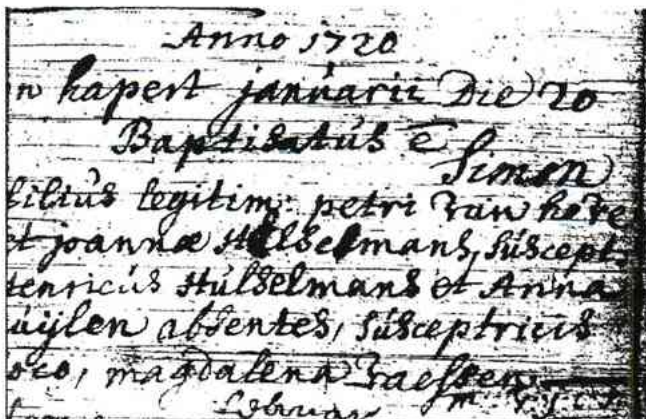 Anno 1720
n hapert januarii Die 20
Baptisatus ē
Simon
filius legitim: petri van hove
et joannæ Hülselmans, suscept.
henricus Hülselmans et Anna
uijlen absentes, susceptricis
oco, magdalena